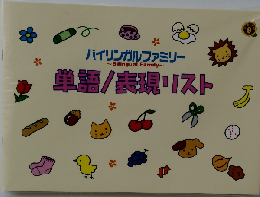 バイリンガルファミリー
-Bilingual Family-
単語/表現リスト